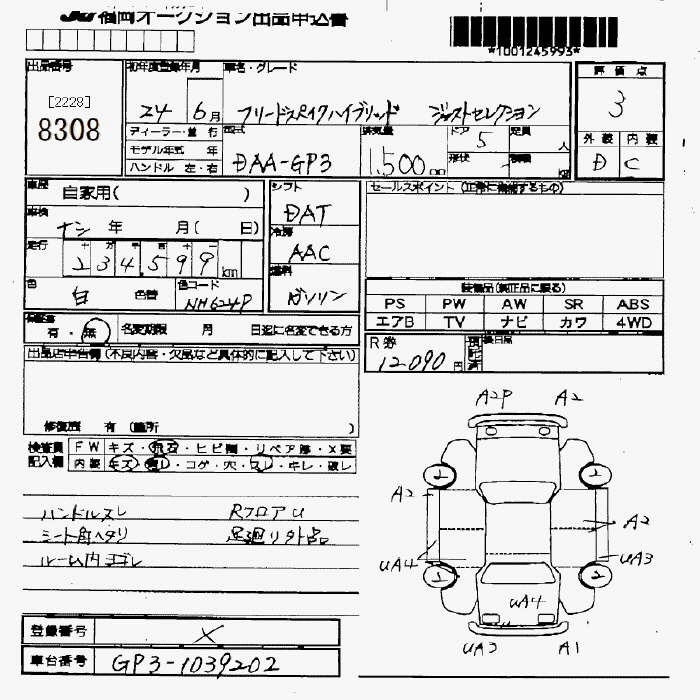 JU 福岡オークション出品申込書
*1001245993*
出品番号
[2228]
8308
初年度登録年月
24 6月
車名・グレード
フリードスパイクハイブリッド ジャストセレクション
評価点
3
外装 内装
D C
ディーラー・並行
モデル年式 年
ハンドル 左・右
型式
DAA-GP3
排気量
1,500
ドア 5
形状
定員 人
車歴
自家用( )
車検
ナシ 年 月( 日)
走行
十 万 千 百 十 一
234,599km
色
白 色替
色コード
NH624P
シフト
DAT
冷房
AAC
燃料
ガソリン
セールスポイント (正常に機能するもの)
装備品(純正品に限る)
PS PW AW SR ABS
エアB TV ナビ カワ 4WD
保証書
有・無
名変期限 月 日迄に名変できる方
R券
12,090円
後日品
出品店申告欄(不良内容・欠品など具体的に記入して下さい)
修復歴 有(箇所 )
検査員 FW キズ・飛石・ヒビ割・リペア跡・X要
記入欄 内装 キズ・汚レ・コゲ・穴・スレ・キレ・破レ
ハンドルスレ RフロアU
シート角ヘタリ 足廻リ外品
ルーム内ヨゴレ
A2P A2
2 2
A2 A2
UA4 UA3
2 2
UA4
UA3 A1
登録番号 ×
車台番号 GP3-1039202